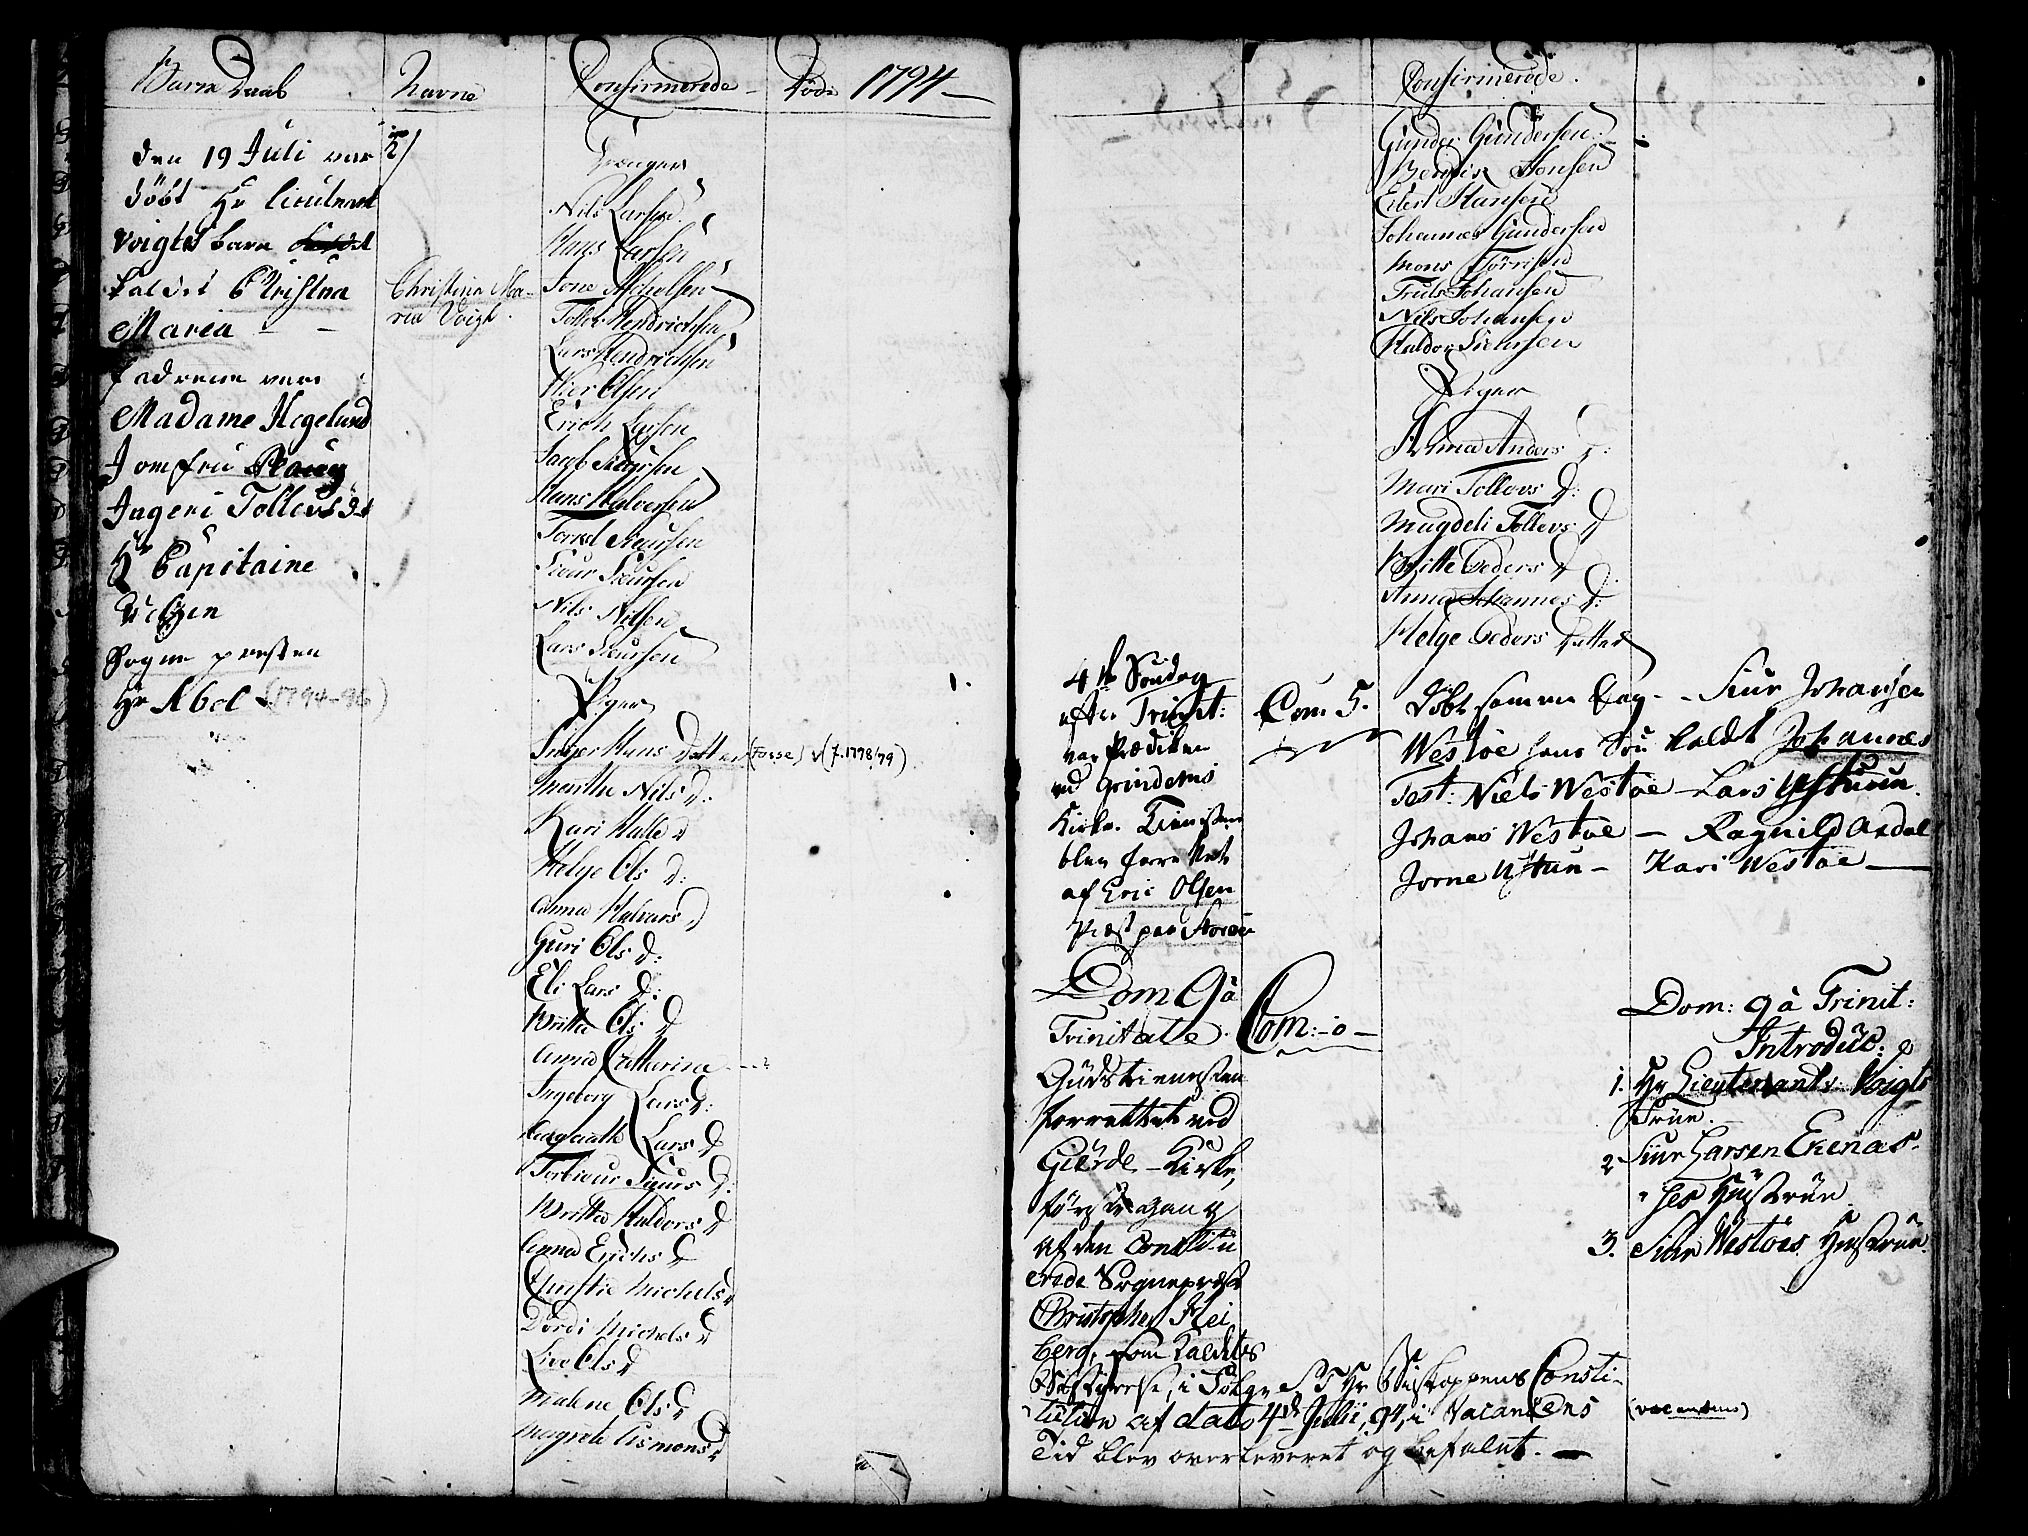 Barne Daab
Navne
Confirmerede
Døde 1794
den 19 Juli var
døbt Hr Lieutnant
Voigts barn
kaldet Christina
Maria
Fadrene vare
Madame Hegelund
Jomfru
Ingeri Tollevsd
Hr Capitaine
Sogne præsten
Hr Abel (1794-96)
Christina Ma-
ria Voigt.
Drenger
Nils Larsen
Hans Larsen
Tone Michelsen
Tollev Hendrichsen
Lars Hendrichsen
Wier Olsen
Erich Larsen
Jacob Siursen
Hans Halversen
Torkel Siursen
Siur Siursen
Nils Nilsen
Lars Siursen
Piger
Inger Hans datter (Fosse) (f. 1778/79)
Marthe Nils D:
Kari Halle D
Helge Ols D:
Anna Halvars D
Guri Ols D:
Eli Lars D:
Britta Ols D
Anna Catharina ---
Ingeborg Lars D:
Aagaath Lars D
Torbiour Siurs D:
Britta Haldors D
Anna Erichs D
Christie Michels D
Dordi Michels D
Live Ols D
Malene Ols D
Magrete Asmons D
Confirmerede.
Gunder Gundersen
Bendix Hansen
Eilert Hansen
Johannes Gundersen
Mons Torrisen
Truls Johansen
Nils Johansen
Haldor Siursen
Piger
Anna Anders D:
Mari Tollovs D:
Magdeli Tollevs D
Britte Peders D
Anna Johannes D:
Helge Peders Datter
4de Søndag
efter Trinit:
var Prædiken
ved Grindems
Kirke. Tienesten
blev forrettet
af Eric Olsen
Præst paa Storøen
Com 5.
døbt samme Dag - Siur Johansen
Westøe hans Søn kaldt Johannes
Test: Niels Westøe - Lars Ystuun.
Johans Westøe - Ragnild Ardal
Jorne Ystun - Kari Westøe
Dom 9 à
Trinitate.
Com: -0-
Gudstienesten
forrettet ved
Gierde-Kirke,
første gang
af den Constitu
erede Sognepræst
Christopher Hei
berg, som Kaldets
Bestyrelse, i Følge S.T. Hr Biskoppens Consti-
tution af dato 4de Julii, 94, i Vacancens (vacansens)
Tid blev overleveret og befalet.
Dom: 9 à Trinit:
Introduc:
1. Hr Lieutenants Voigts
Frue.
2 Siur Larsen Ekenas
hes Hustrue
3. Siur Westøes Hustrue.